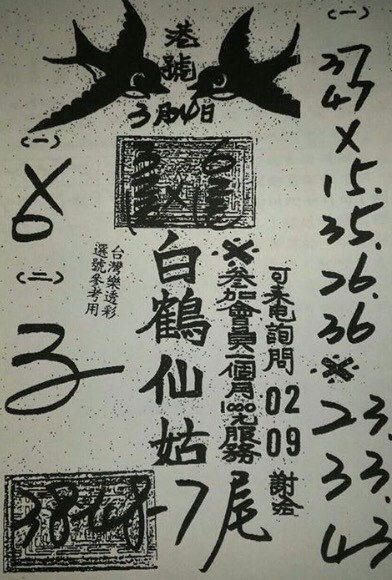 港號
3月4日
(一)
(二)
3
6
X
6
白鶴仙姑
台灣樂透彩
選號參考用
※參加會員一個月1000元服務
可來電詢問
02
09
謝金
38 48
7尾
(一)
37
47
X
15.
35.
26.
36
※
23
33
43